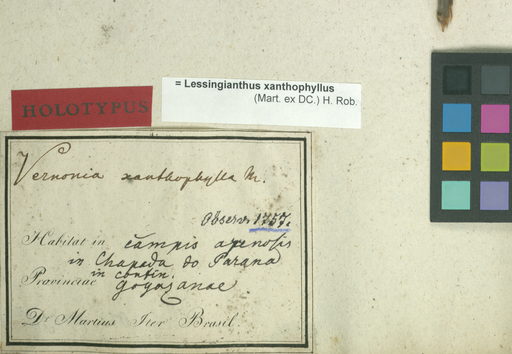 = Lessingianthus xanthophyllus
(Mart. ex DC.) H. Rob.
HOLOTYPUS
Vernonia xanthophylla M.
Observ. 1757.
Habitat in campis arenosis
in Chapada do Parana
in confin.
Provinciae Goyazanae.
Dr. Martius Iter Brasil.